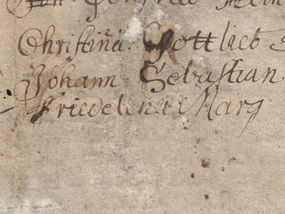 Christina. Gottlieb
Johann Sebastian.
Friedelena Marg